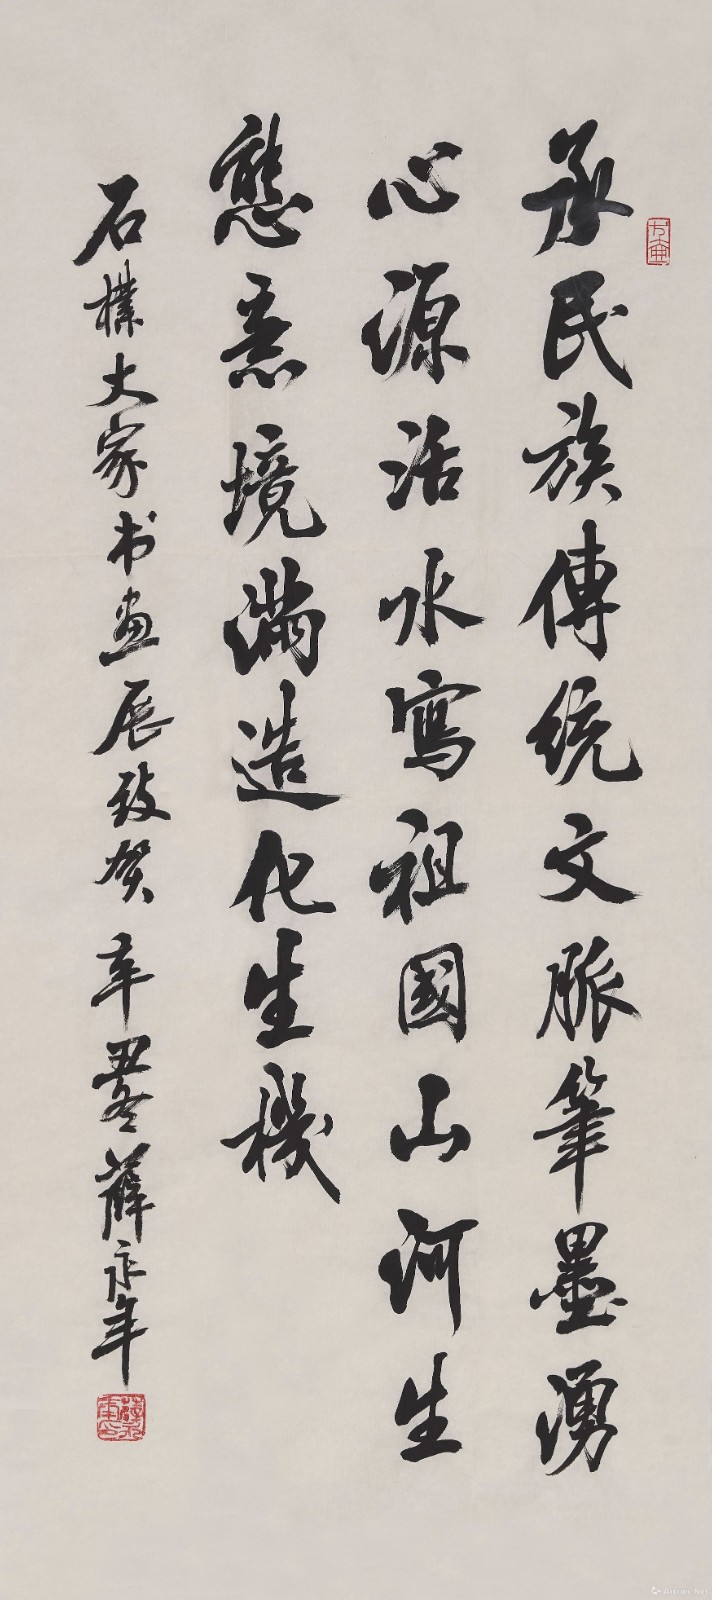 承民族傳統文脈筆墨湧
心源活水寫祖國山河生
態意境滿造化生機
石樸大家书画展致贺 辛丑冬 薛永年